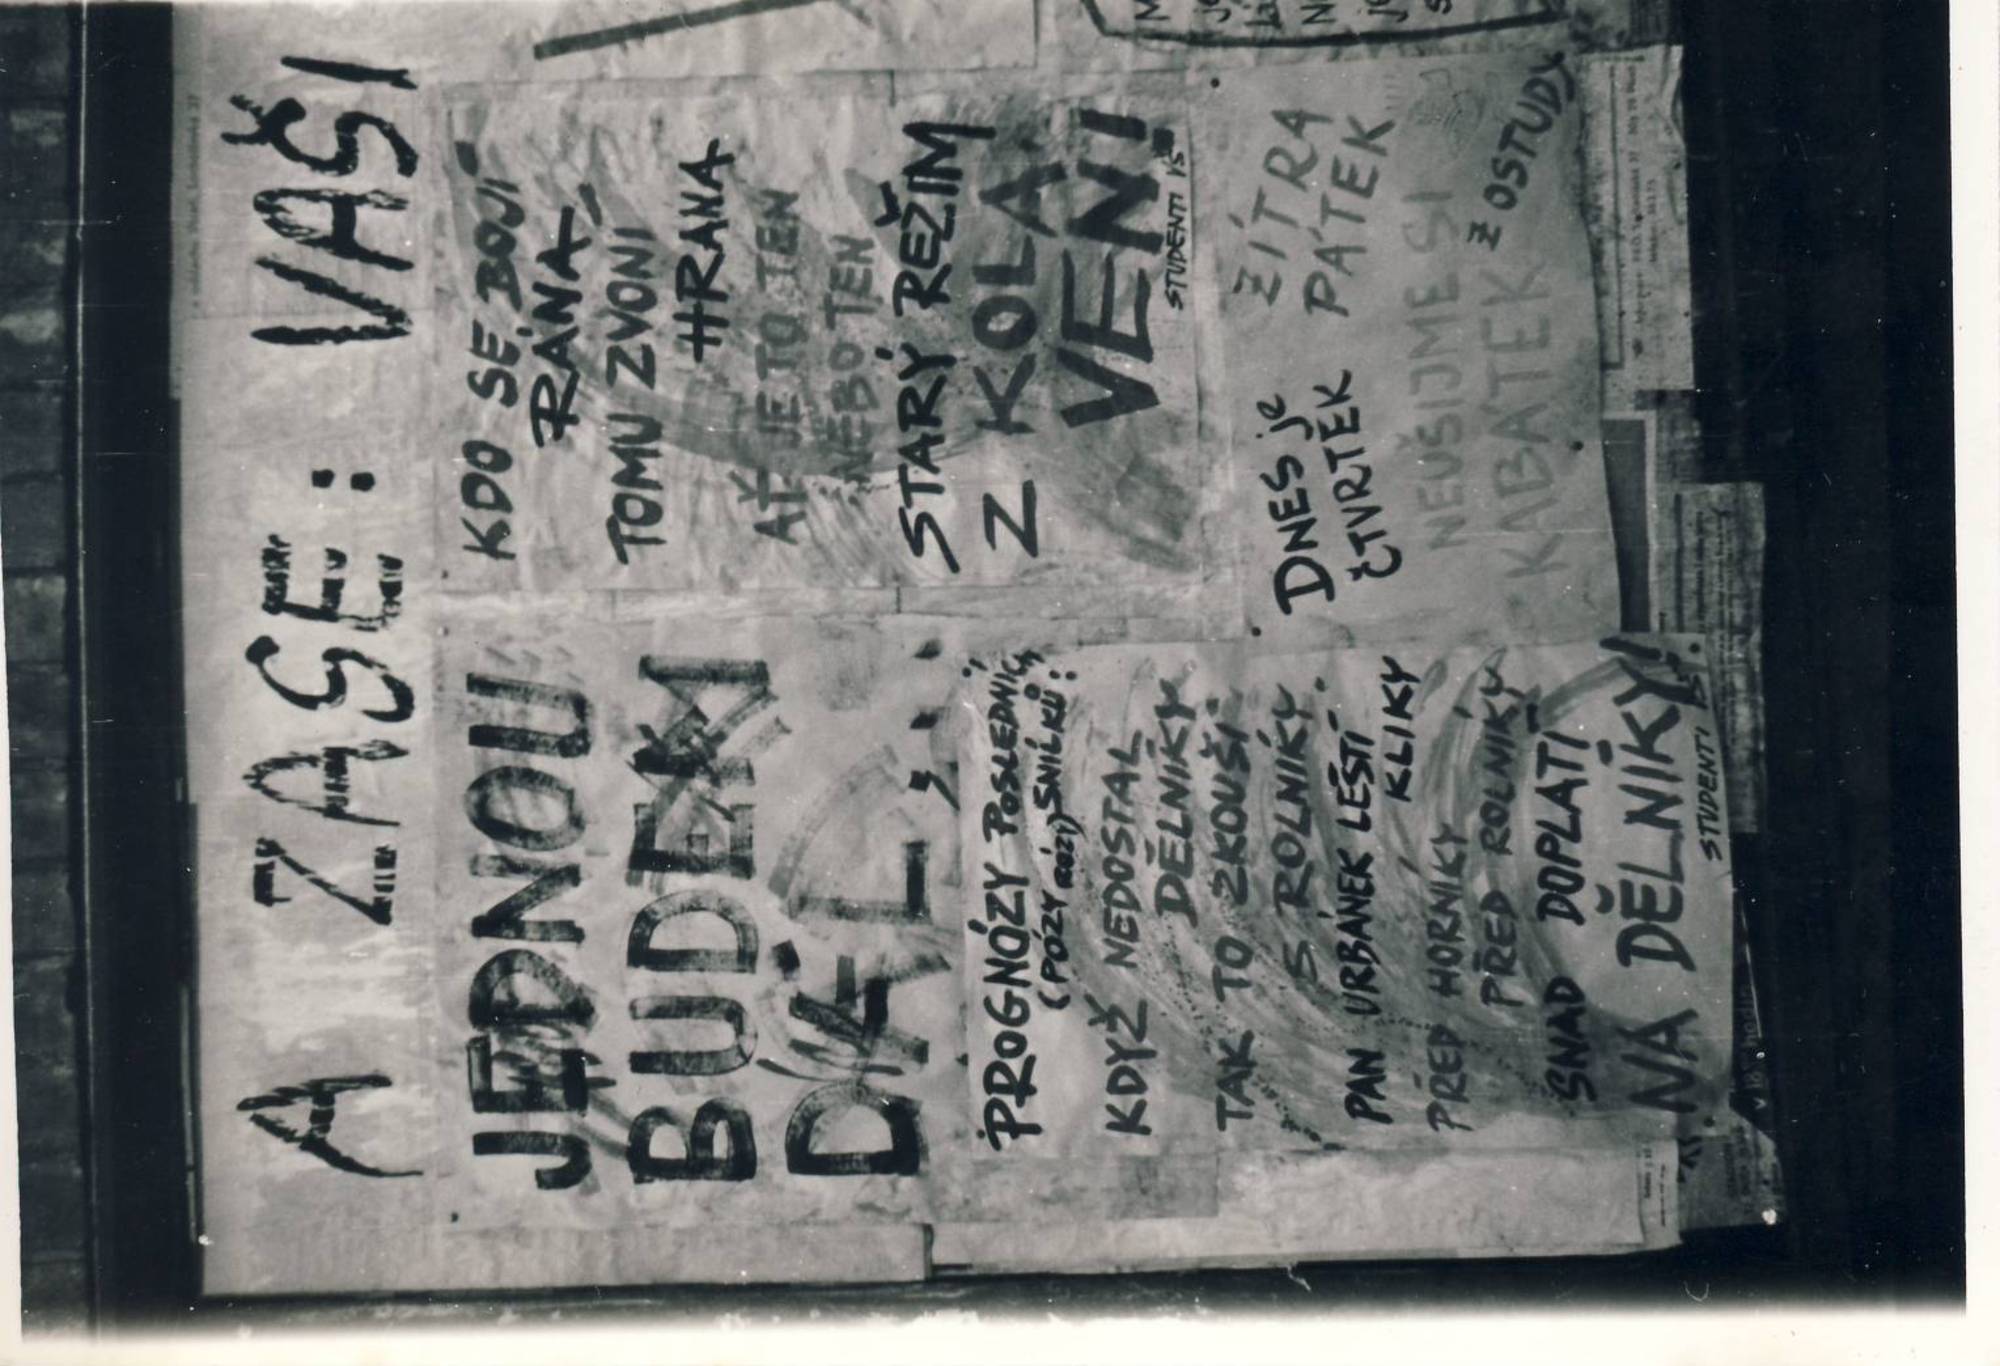 A ZASE: VAŠI
JEDNOU
BUDEM
DÁL...,
PROGNÓZY POSLEDNÍCH
(PÓZY RÓZY) SNÍLKŮ:
KDYŽ NEDOSTAL
DĚLNÍKY
TAK TO ZKOUŠÍ
S ROLNÍKY.
PAN URBÁNEK LEŠTÍ
KLIKY
PŘED HORNÍKY
PŘED ROLNÍKY
SNAD DOPLATÍ
NA DĚLNÍKY!
STUDENTI VŠ
KDO SE BOJÍ
RÁNA
TOMU ZVONÍ
HRANA
AŤ JE TO TEN
NEBO TEN
STARÝ REŽIM
Z KOLA
VEN!
STUDENTI VŠ
DNES je
ČTVRTEK
ZÍTRA
PÁTEK
NEUŠIJME SI
KABÁTEK
Z OSTUDY